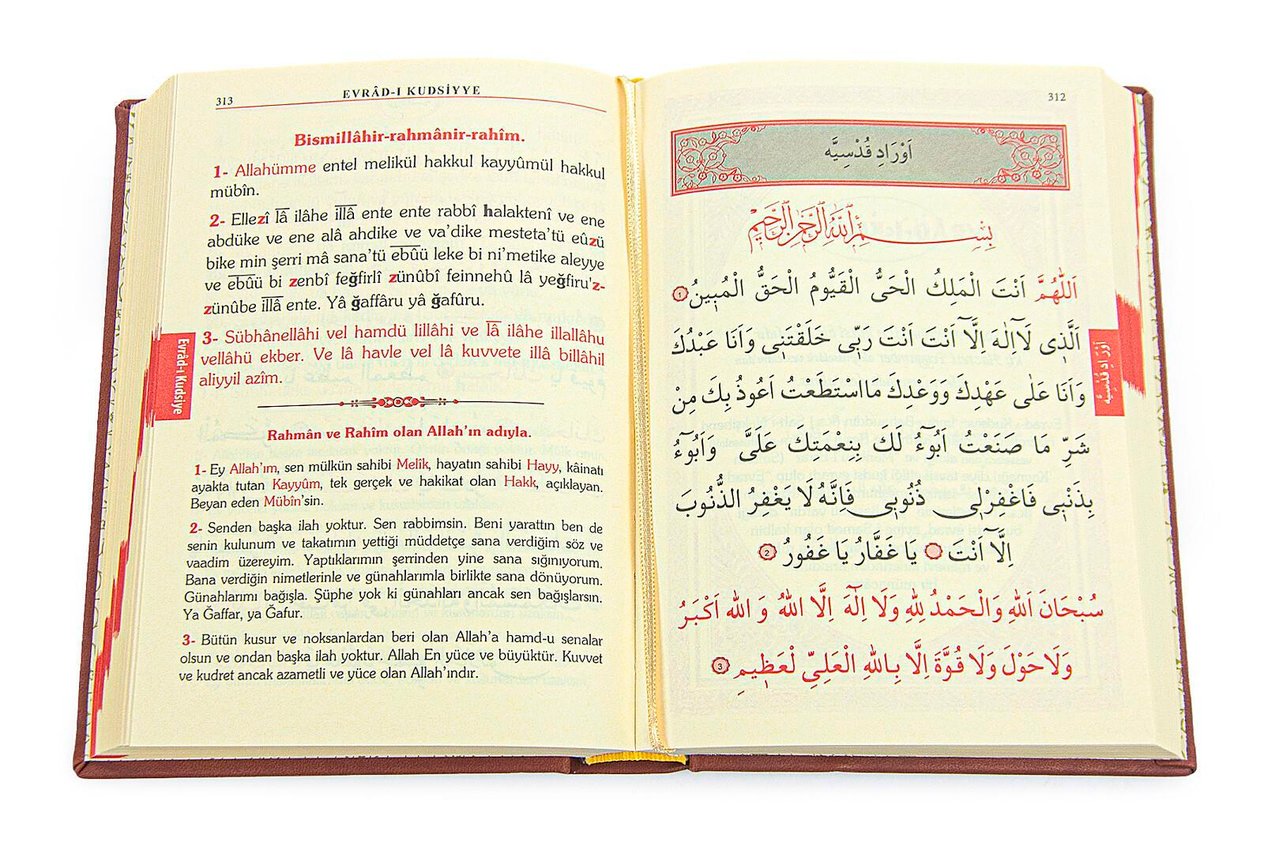 312
اَوْرَادِ قُدْسِيَّه
بِسْــمِ اللهِ الرَّحْمٰنِ الرَّحِيْمِ
اَللّٰهُمَّ اَنْتَ الْمَلِكُ الْحَىُّ الْقَيُّومُ الْحَقُّ الْمُبٖينُ ١
اَلَّذٖى لَآاِلٰهَ اِلَّآ اَنْتَ اَنْتَ رَبّٖى خَلَقْتَنٖى وَاَنَا عَبْدُكَ
وَاَنَا عَلٰى عَهْدِكَ وَوَعْدِكَ مَااسْتَطَعْتُ اَعُوذُ بِكَ مِنْ
شَرِّ مَا صَنَعْتُ اَبُوٓءُ لَكَ بِنِعْمَتِكَ عَلَىَّ وَاَبُوٓءُ
بِذَنْبٖى فَاغْفِرْلٖى ذُنُوبٖى فَاِنَّهُ لَا يَغْفِرُ الذُّنُوبَ
اِلَّآ اَنْتَ يَا غَفَّارُ يَا غَفُورُ 2
سُبْحَانَ اَللهِ وَالْحَمْدُ لِلهِ وَلَا اِلَهَ اِلَّا اللهُ وَ الله اَكْبَرُ
وَلَاحَوْلَ وَلَا قُوَّةَ اِلَّا بِاللهِ الْعَلِىِّ لْعَظٖيمِ 3
اَوْرَادِ قُدْسِيَّه
313
EVRÂD-I KUDSİYYE
Bismillâhir-rahmânir-rahîm.
1- Allahümme entel melikül hakkul kayyûmül hakkul
mübîn.
2- Ellezî lâ ilâhe illâ ente ente rabbî halaktenî ve ene
abdüke ve ene alâ ahdike ve va'dike mesteta'tü eûzü
bike min şerri mâ sana'tü ebûü leke bi ni'metike aleyye
ve ebûü bi zenbî feğfirlî zünûbî feinnehu lâ yeğfiru'z-
zünûbe illâ ente. Yâ ğaffâru yâ ğafûru.
3- Sübhânellâhi vel hamdü lillâhi ve lâ ilâhe illallâhu
vellâhü ekber. Ve lâ havle vel lâ kuvvete illâ billâhil
aliyyil azîm.
Rahmân ve Rahîm olan Allah'ın adıyla.
1- Ey Allah'ım, sen mülkün sahibi Melîk, hayatın sahibi Hayy, kâinatı
ayakta tutan Kayyûm, tek gerçek ve hakikat olan Hakk, açıklayan.
Beyan eden Mübîn'sin.
2- Senden başka ilah yoktur. Sen rabbimsin. Beni yarattın ben de
senin kulunum ve takatımın yettiği müddetçe sana verdiğim söz ve
vaadim üzereyim. Yaptıklarımın şerrinden yine sana sığınıyorum.
Bana verdiğin nimetlerinle ve günahlarımla birlikte sana dönüyorum.
Günahlarımı bağışla. Şüphe yok ki günahları ancak sen bağışlarsın.
Ya Ğaffar, ya Ğafur.
3- Bütün kusur ve noksanlardan beri olan Allah'a hamd-u senalar
olsun ve ondan başka ilah yoktur. Allah En yüce ve büyüktür. Kuvvet
ve kudret ancak azametli ve yüce olan Allah'ındır.
Evrâd-ı Kudsiye